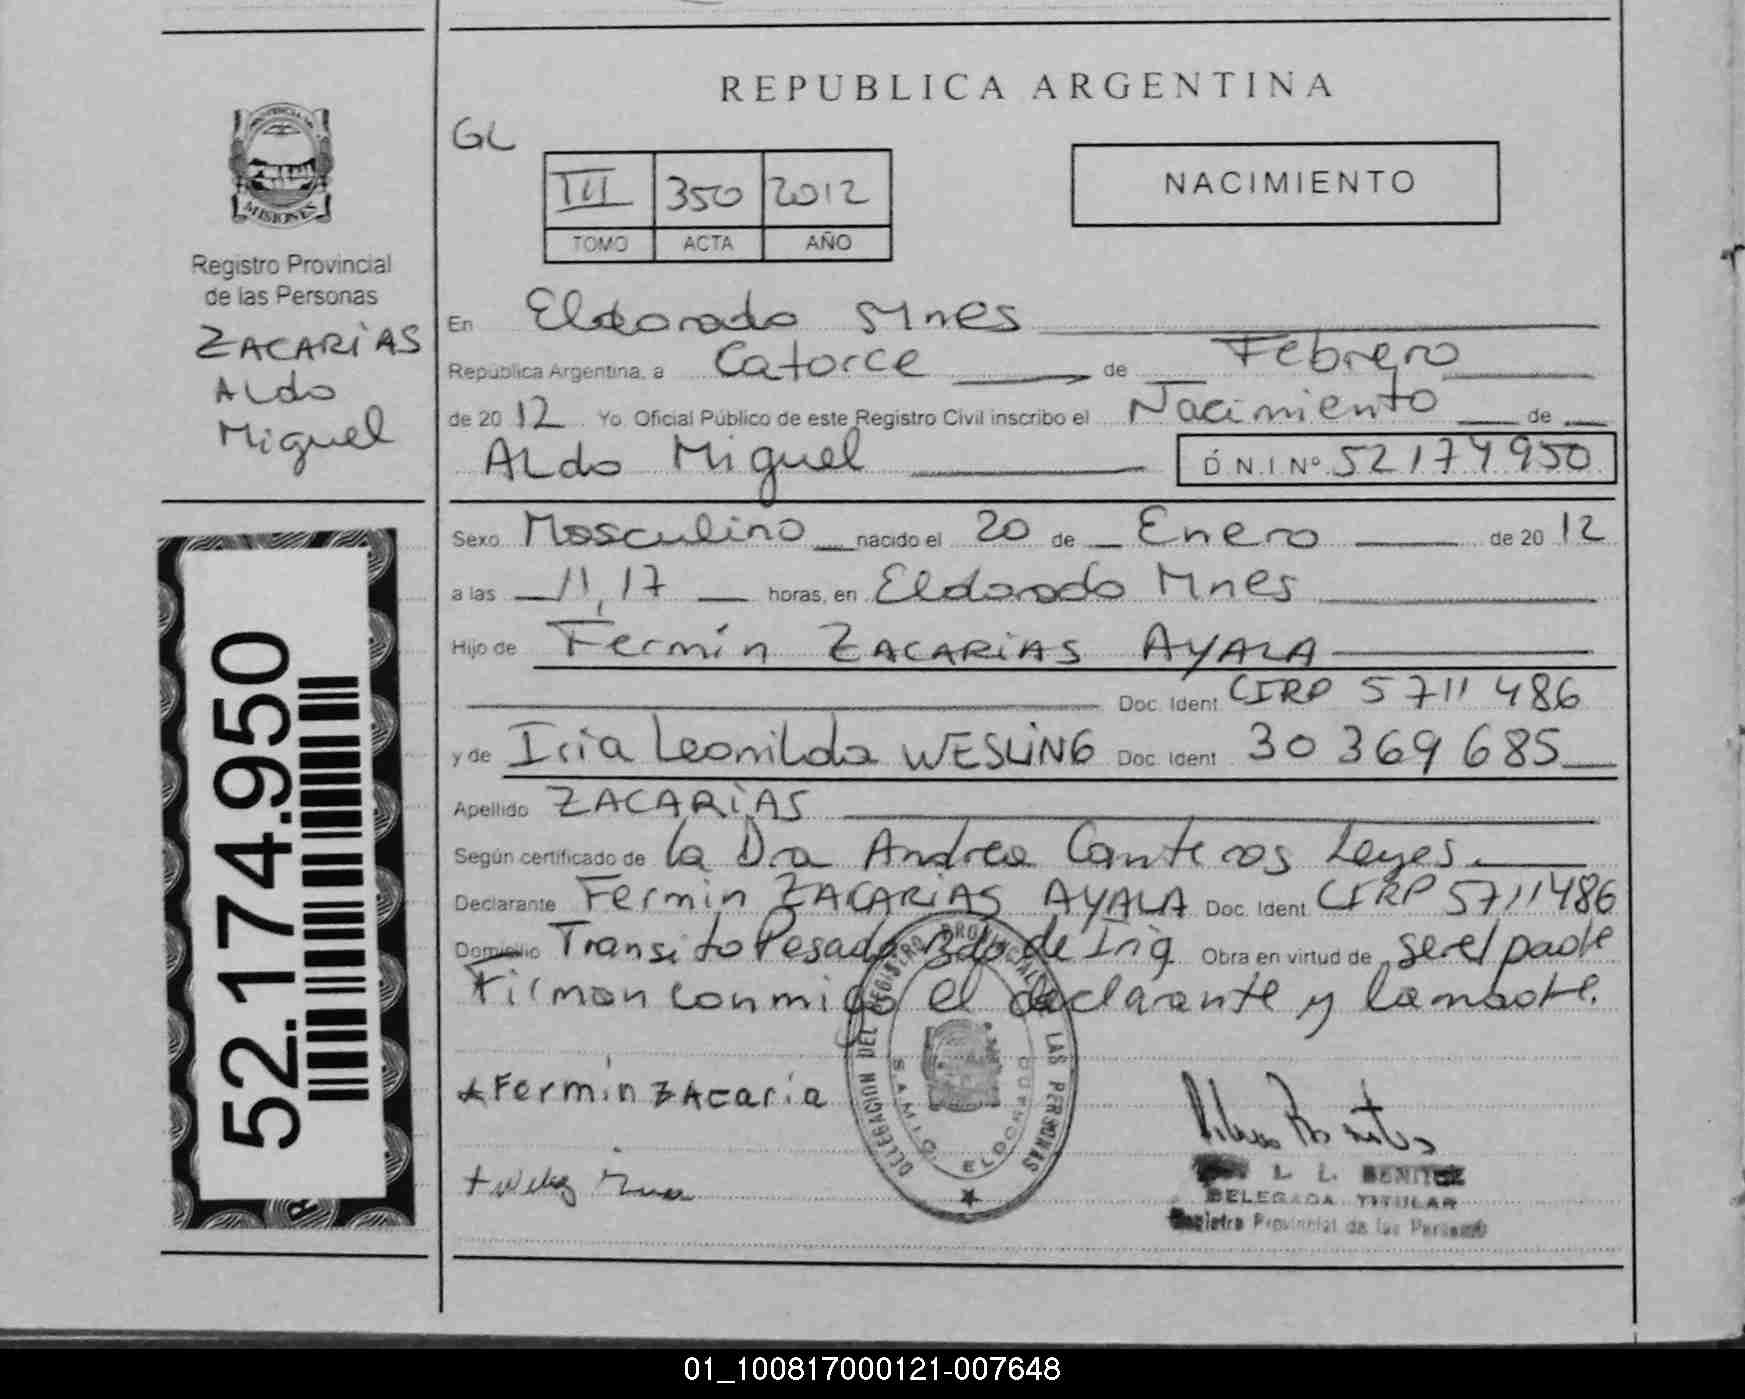 REPUBLICA ARGENTINA
GL
NACIMIENTO
III 350 2012
TOMO ACTA AÑO
MISIONES
Registro Provincial
de las Personas
ZACARIAS
Aldo
Miguel
52.174.950
En Eldorado Mnes
Republica Argentina, a Catorce de Febrero
de 2012 Yo Oficial Público de este Registro Civil inscribo el Nacimiento de
Aldo Miguel D.N.I Nº 52174950
Sexo Masculino nacido el 20 de Enero de 2012
a las 11,17 horas, en Eldorado Mnes
Hijo de Fermín ZACARIAS AYALA
Doc. Ident. CIRP 5711486
y de Iria Leonilda WESLING Doc. Ident. 30369685
Apellido ZACARIAS
Según certificado de la Dra Andrea Canteros Leyes.
Declarante Fermin ZACARIAS AYALA Doc. Ident. CIRP 5711486
Domicilio Transito Pesado Bdo de Irig Obra en virtud de ser el padre
Firman conmigo el declarante y la madre.
DELEGACION DEL REGISTRO PROVINCIAL LAS PERSONAS
ELDORADO
Fermin ZAcaria
L. L. BENITEZ
DELEGADA TITULAR
Registro Provincial de las Personas
01_100817000121-007648